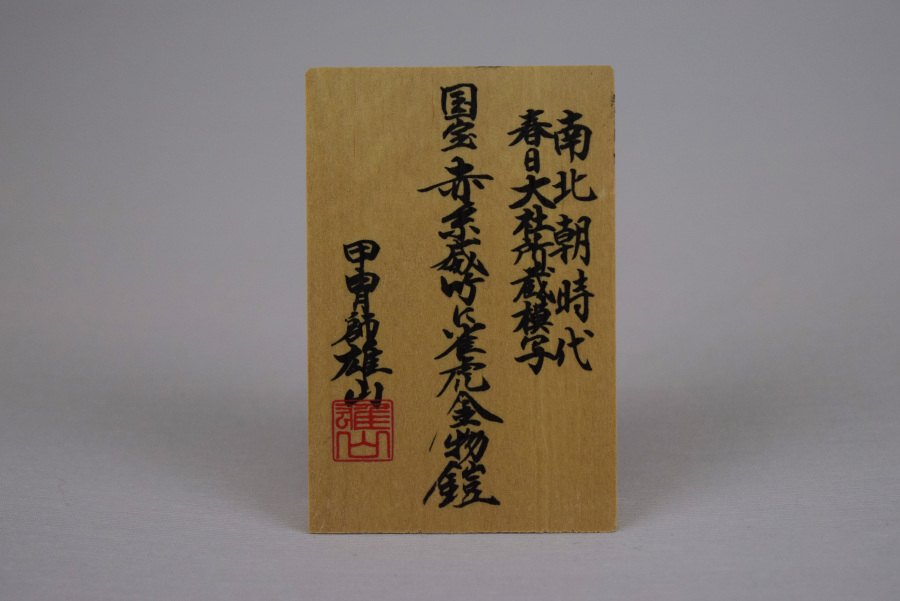 南北朝時代
春日大社所蔵模写
国宝赤糸威竹に雀虎金物鎧
甲冑師雄山
雄山